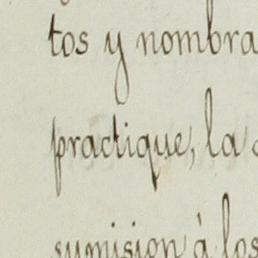 tos y nombra
practique, la
sumision á los